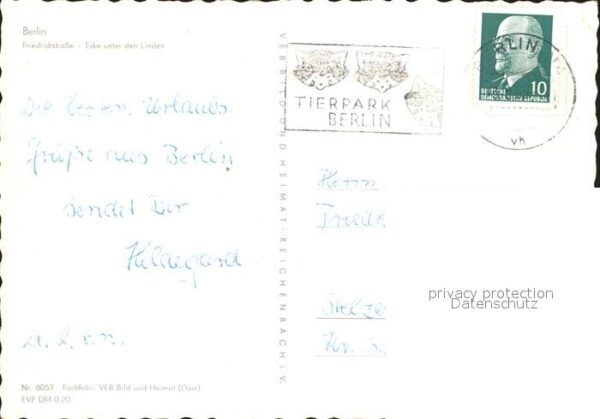 Berlin
Friedrichstraße - Ecke unter den Linden
Die besten Urlaubs-
Grüße aus Berlin
sendet Dir
Hildegard
Nr. 6057 Farbfoto: VEB Bild und Heimat (Dors)
EVP DM 0,20
VEB BILD UND HEIMAT · REICHENBACH i. V.
TIERPARK
BERLIN
BERLIN
vh
10
DEUTSCHE
DEMOKRATISCHE REPUBLIK
Herrn
privacy protection
Datenschutz